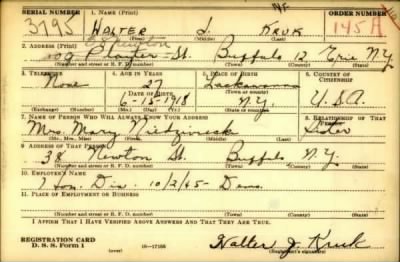 SERIAL NUMBER 1. NAME (Print) ORDER NUMBER
3795 WALTER J. KRUK 145A
(First) (Middle) (Last)
2. ADDRESS (Print)
St. Buffalo 12 Erie N.Y.
(Number and street or R. F. D. number) (Town) (County) (State)
3. TELEPHONE 4. AGE IN YEARS 5. PLACE OF BIRTH 6. COUNTRY OF CITIZENSHIP
None 27 Lackawanna
DATE OF BIRTH (Town or county)
6-15-1918 N.Y. U.S.A.
(Exchange) (Number) (Mo.) (Day) (Yr.) (State or country)
7. NAME OF PERSON WHO WILL ALWAYS KNOW YOUR ADDRESS 8. RELATIONSHIP OF THAT PERSON
Mrs. Mary Sister
(Mr., Mrs., Miss) (First) (Middle) (Last)
9. ADDRESS OF THAT PERSON
38 Newton St. Buffalo N.Y.
(Number and street or R. F. D. number) (Town) (County) (State)
10. EMPLOYER'S NAME
Hon. Dis. 10/2/45-
11. PLACE OF EMPLOYMENT OR BUSINESS
(Number and street or R. F. D. number) (Town) (County) (State)
I AFFIRM THAT I HAVE VERIFIED ABOVE ANSWERS AND THAT THEY ARE TRUE.
REGISTRATION CARD
D. S. S. Form 1 (over) 16-17105 Walter J. Kruk
(Registrant's signature)